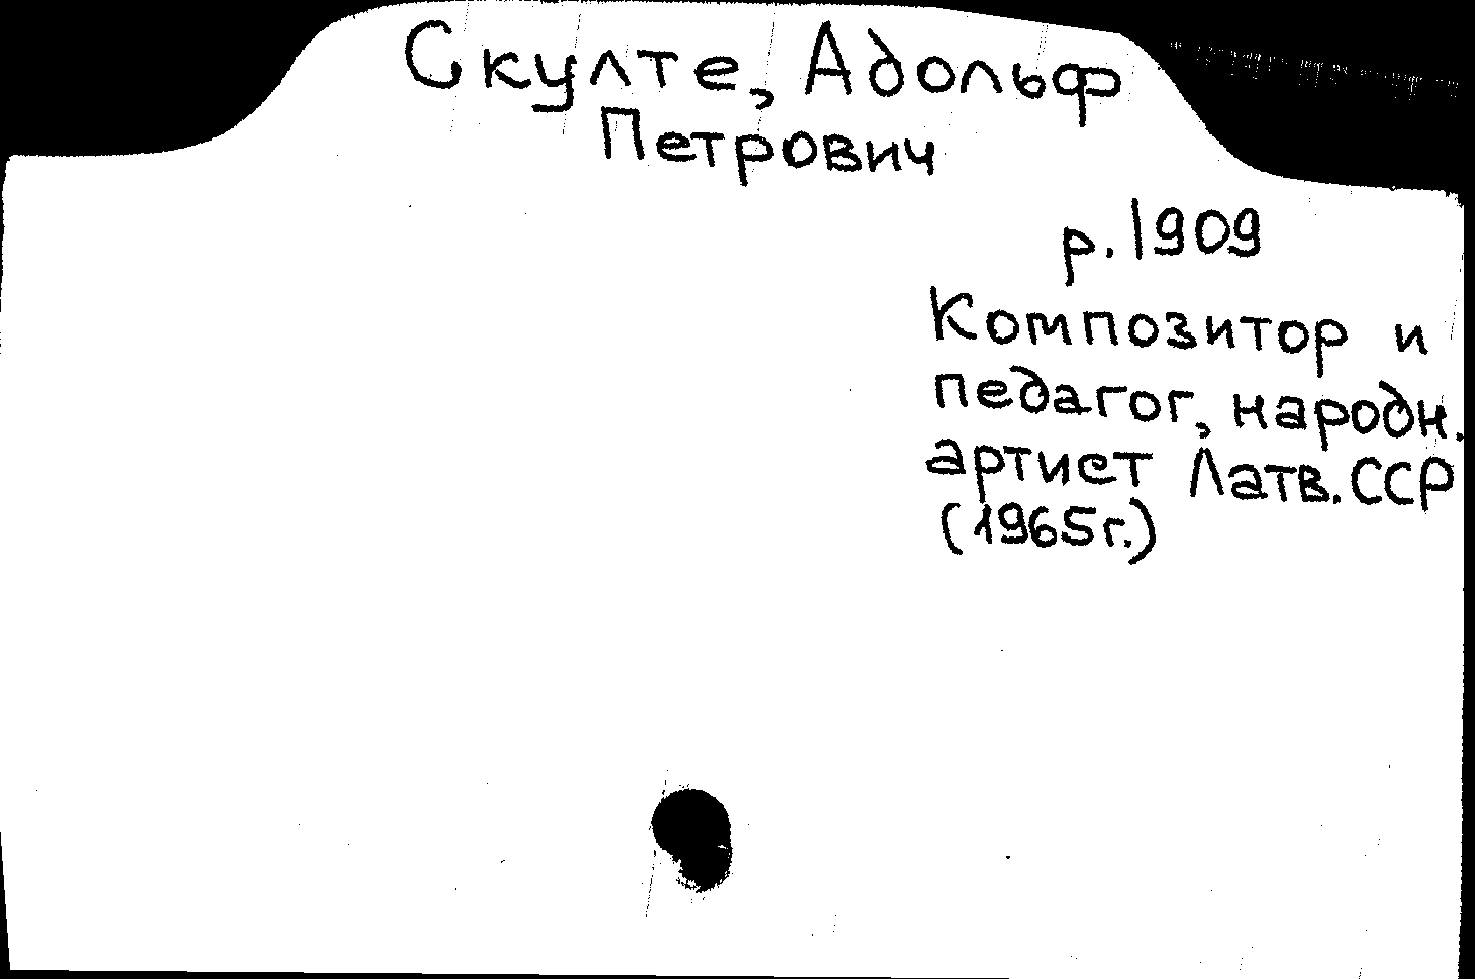 Скулте, Адольф
Петрович
р. 1909
Композитор и
педагог, народн.
артист Латв. ССР
(1965г.)